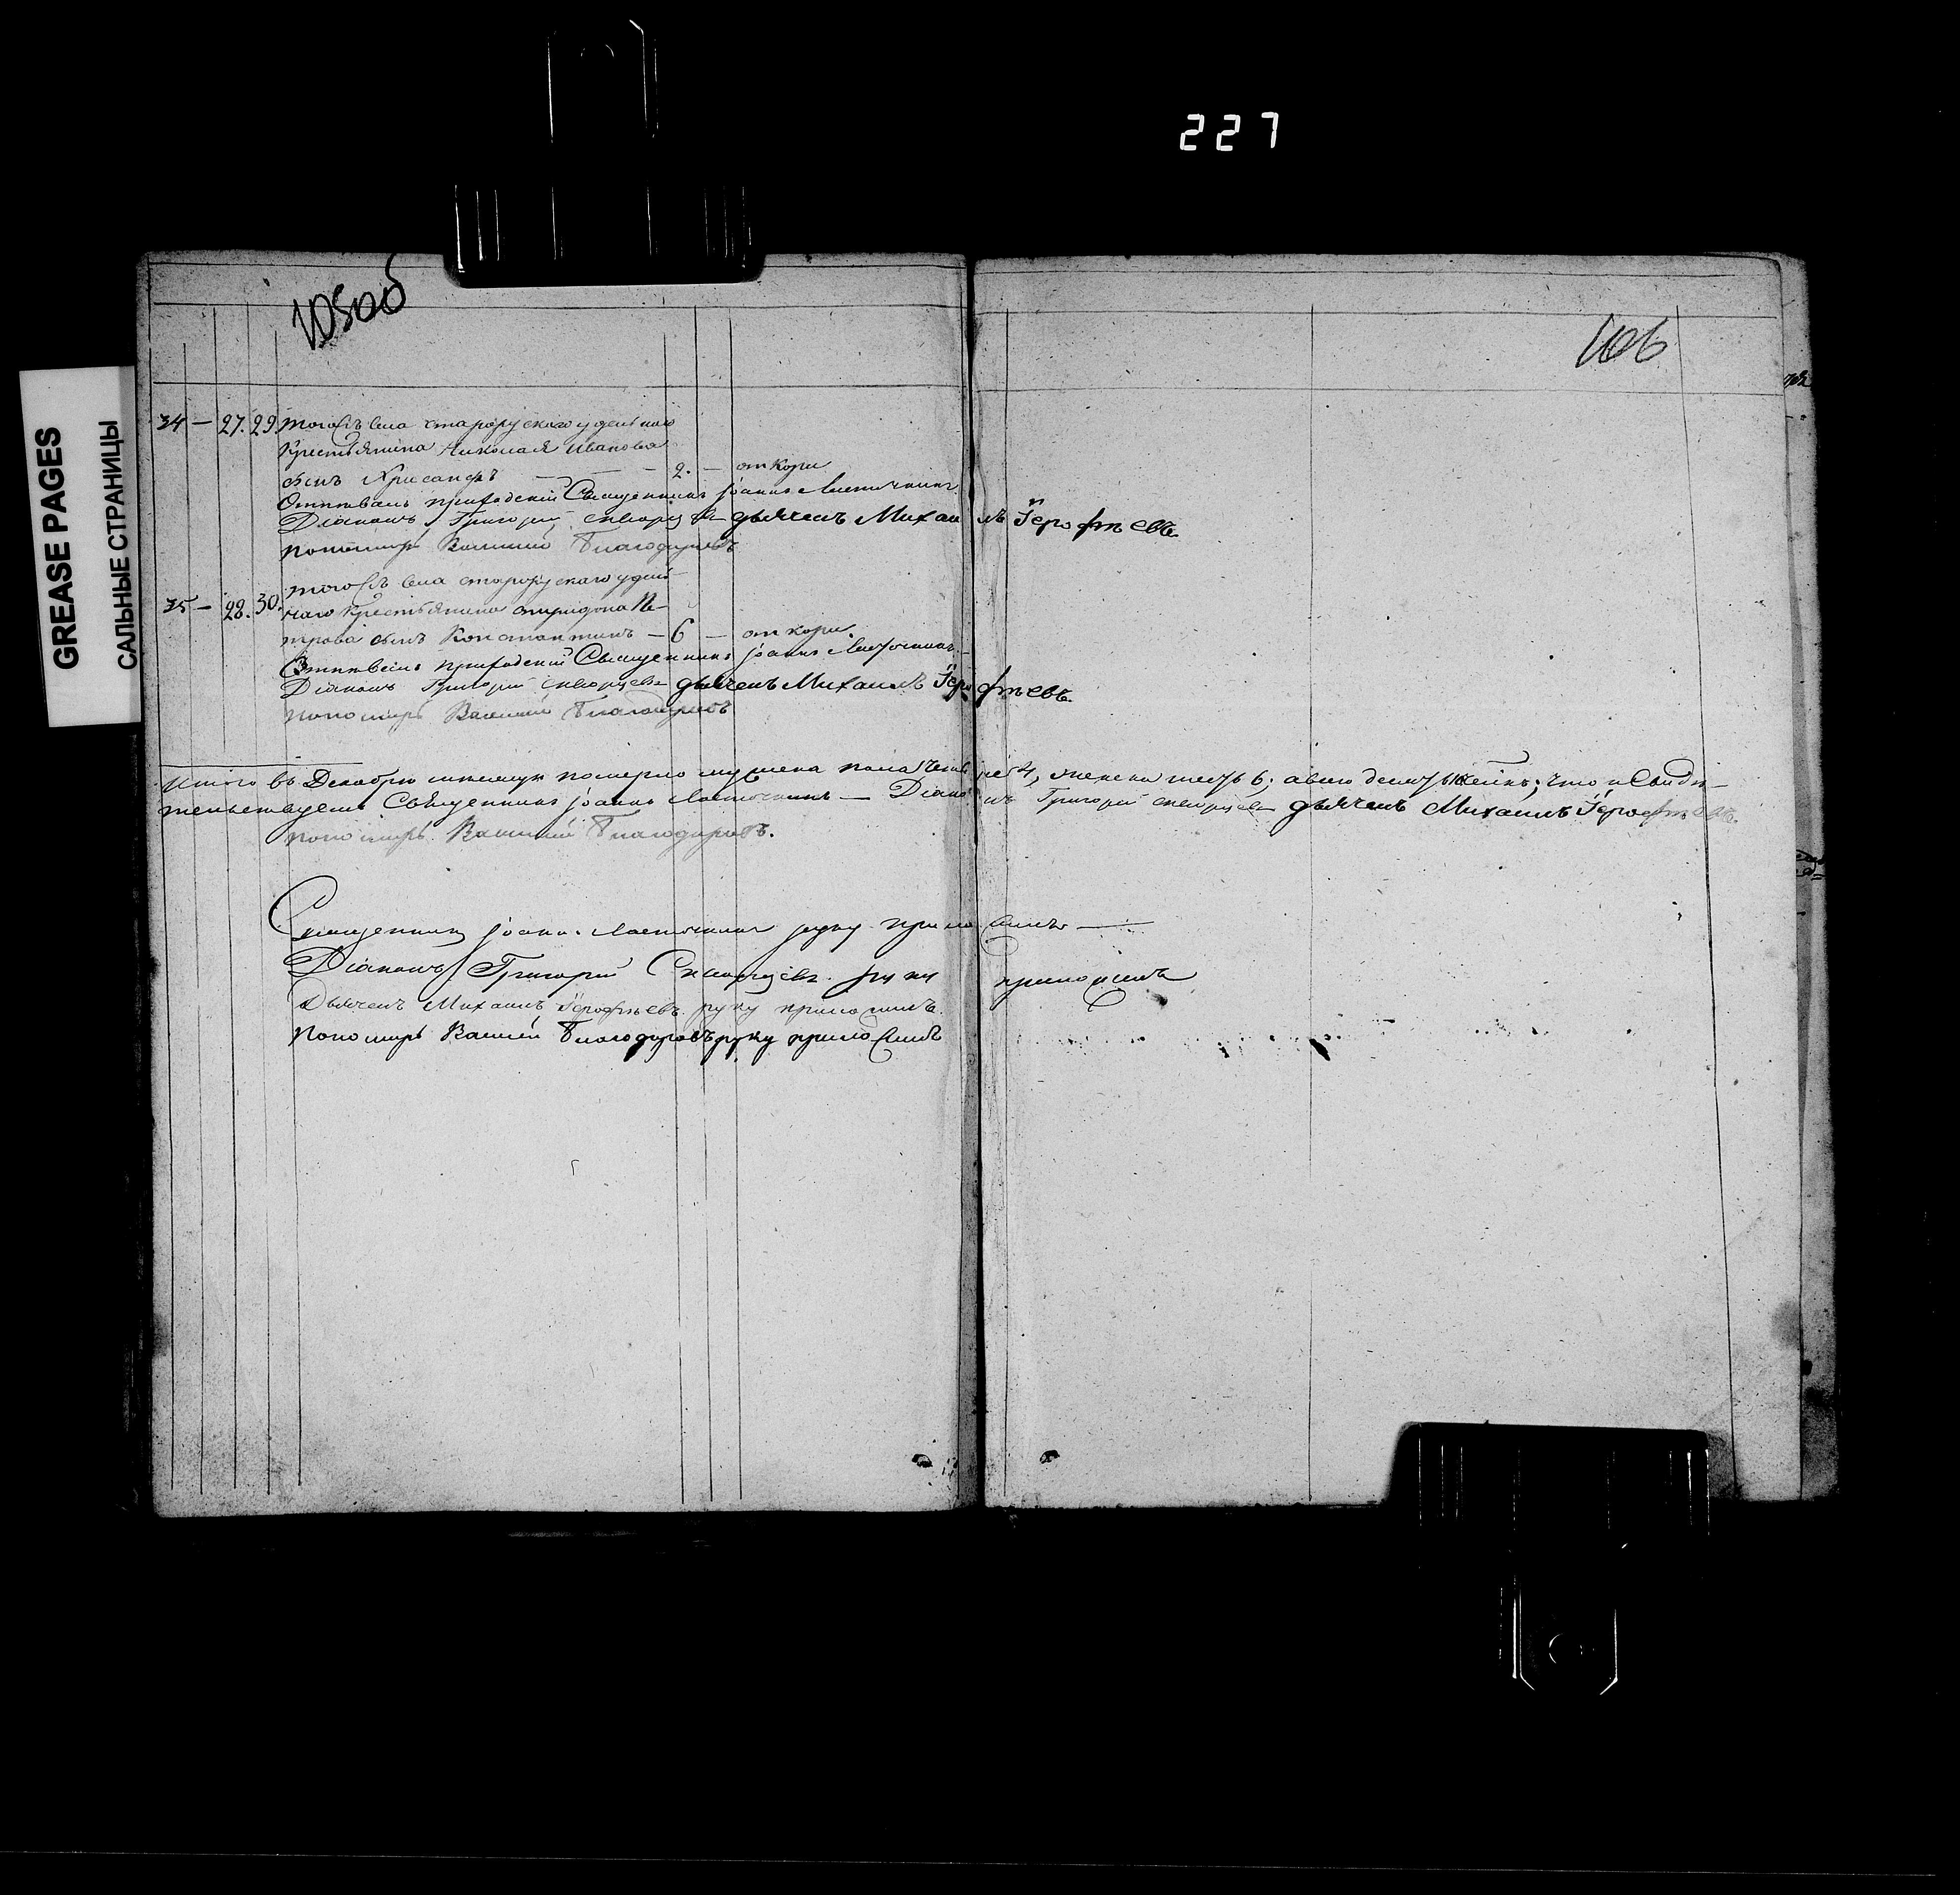 227
105об
106
GREASE PAGES
САЛЬНЫЕ СТРАНИЦЫ
34 — 27. 29. тогожъ села старорускаго удельнаго
крестьянина Николая Иванова
сынъ Хрисанфъ — 2. — от кори
Отпевалъ приходский Священникъ Іоаннъ Ласточкинъ
Діаконъ Григорій Скворцевъ дьячекъ Михаилъ Герофѣевъ
пономарь Василий Благодаровъ
35 — 28. 30. тогожъ села старорускаго удель-
наго крестьянина спиридона Пе-
трова сынъ Константинъ — 6 — от кори.
Отпевалъ приходский Священникъ Іоаннъ Ласточкинъ
Діаконъ Григорій Скворцевъ дьячекъ Михаилъ Герофѣевъ.
пономарь Василий Благодаровъ
Итого въ Декабрѣ месяцѣ померло мужеска пола 4, женска 6; что и Свидѣ-
тельствуемъ Священникъ Іоаннъ Ласточкинъ — Діаконъ Григорій Скворцевъ дьячекъ Михаилъ Герофѣевъ.
пономарь Василий Благодаровъ.
Священникъ Іоаннъ Ласточкинъ руку приложилъ —
Діаконъ Григорій Скворцевъ руку приложилъ
Дьячекъ Михаилъ Герофѣевъ руку приложилъ.
Пономарь Василий Благодаровъ руку приложилъ